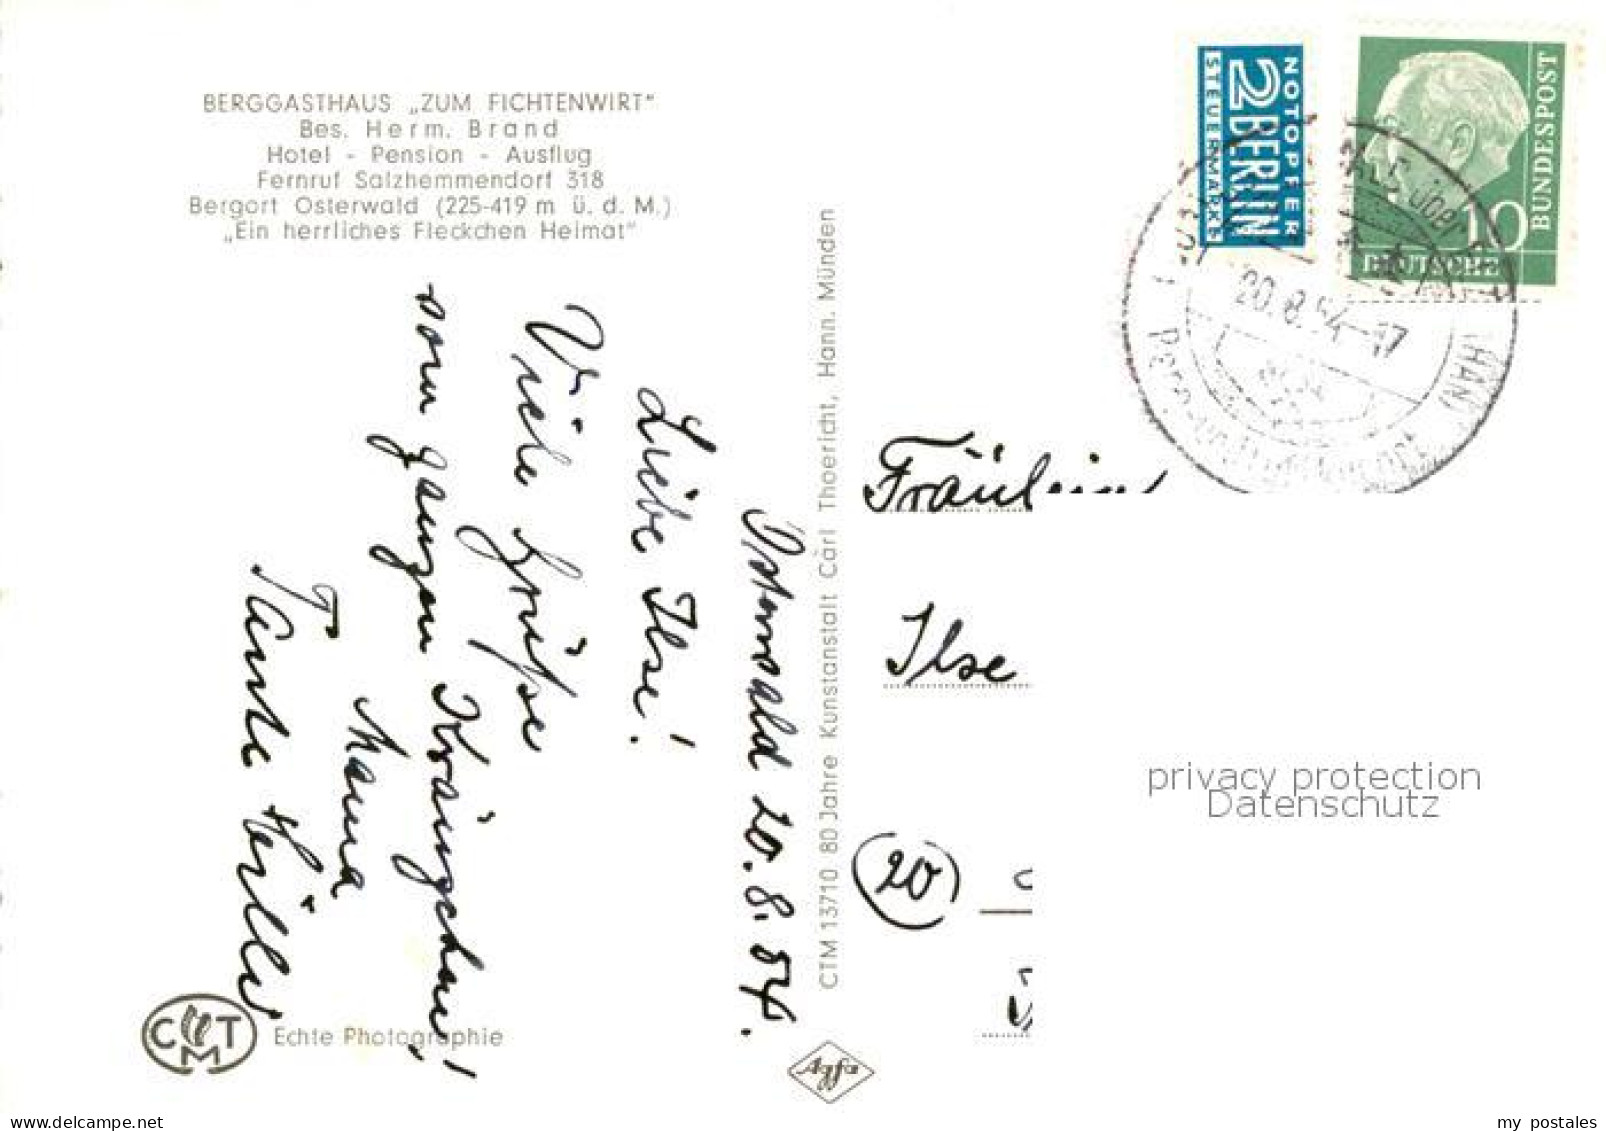 BERGGASTHAUS „ZUM FICHTENWIRT"
Bes. Herm. Brand
Hotel - Pension - Ausflug
Fernruf Salzhemmendorf 318
Bergort Osterwald (225-419 m ü. d. M.)
„Ein herrliches Fleckchen Heimat"
Osterwald 20.8.54.
Liebe Ilse!
Viele Grüße
vom ganzen Kränzchen!
Mama
Tante
CTM
Echte Photographie
CTM 13710 80 Jahre Kunstanstalt Carl Thoericht, Hann. Münden
Agfa
NOTOPFER
2 BERLIN
STEUERMARKE
10
BUNDESPOST
DEUTSCHE
über
20.8.54-17
Fräulein
Ilse
(20)
privacy protection
Datenschutz
www.delcampe.net
my_postales